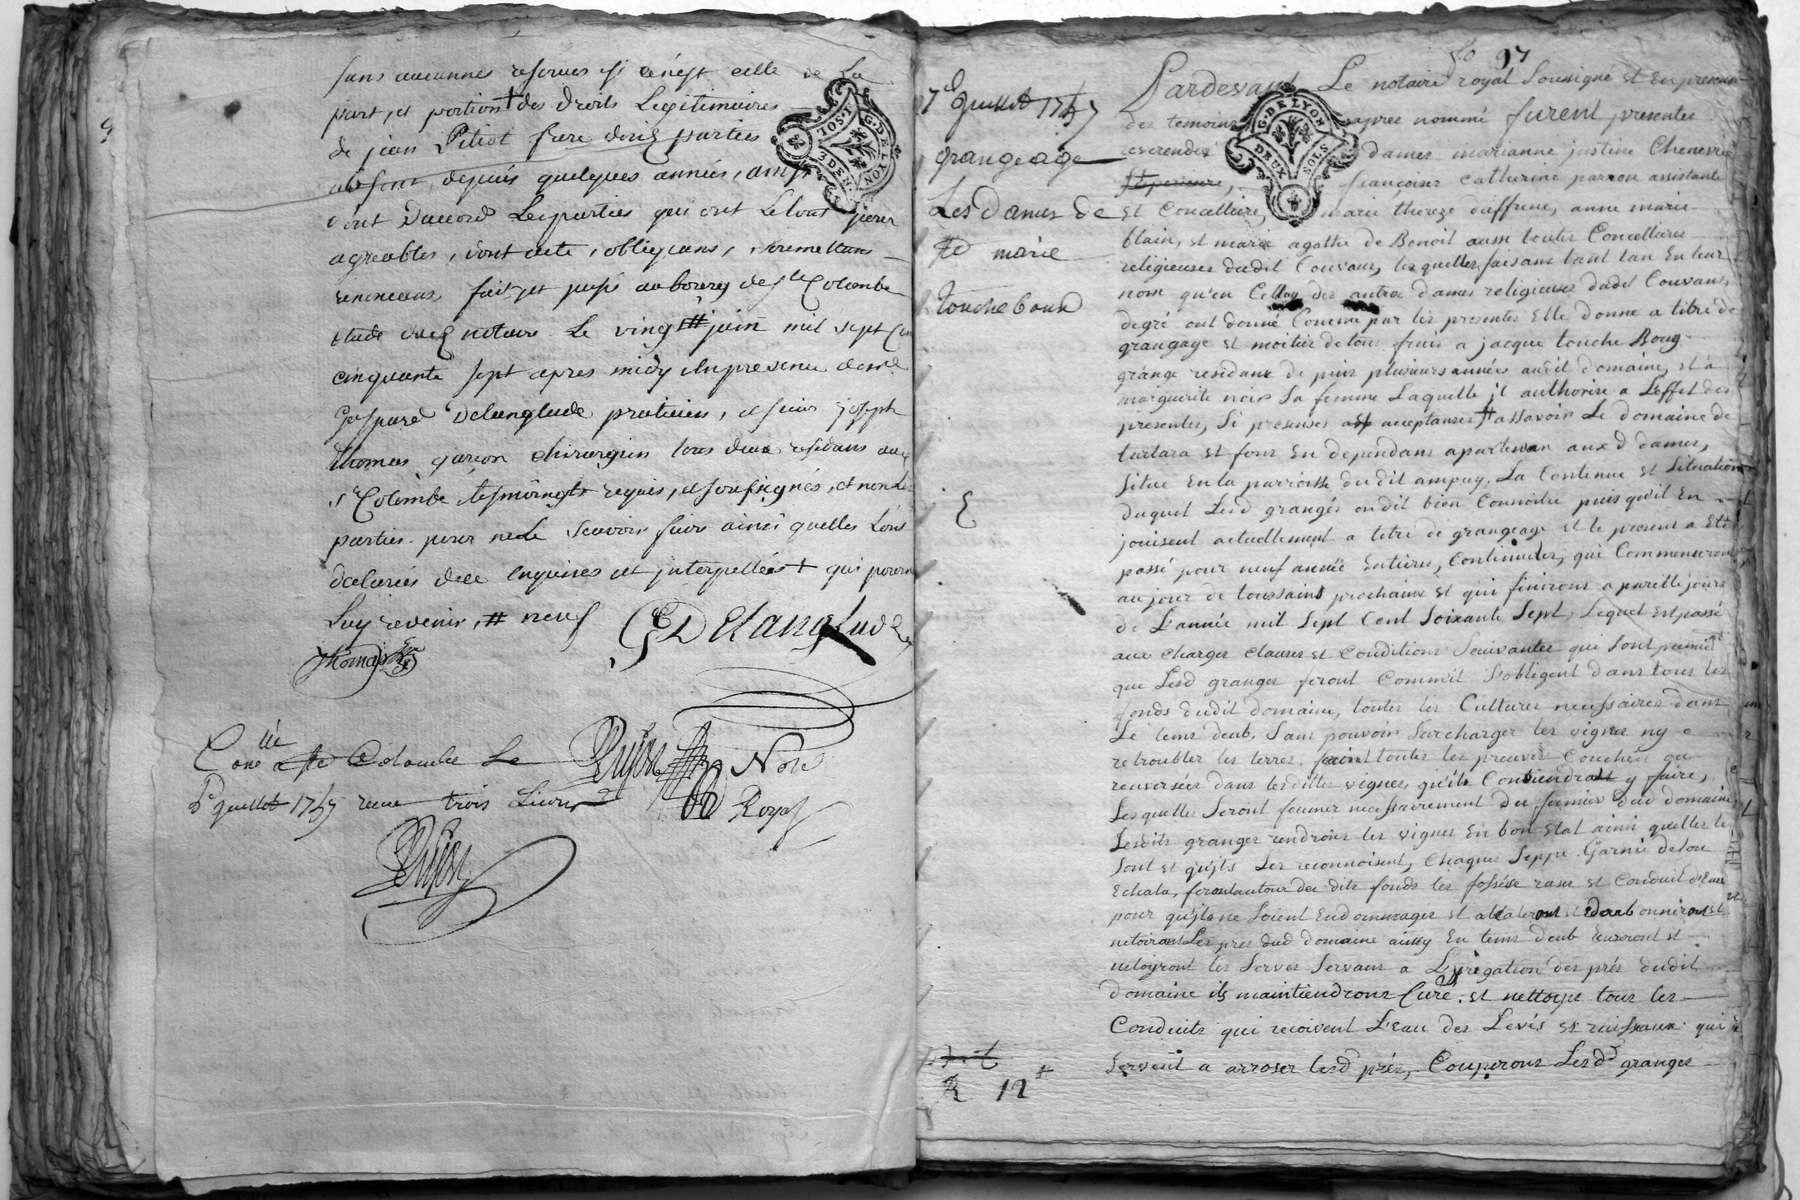 sans aucunnes reserves si ce n'est celle de La
part, et portion + des droits Legitimaires
de jean Pitiot frere desd parties
absent, depuis quelques années,
dont d'accord Les parties qui ont Le tout pour
agreables, dont acte, obligeans, soumettans
renonceans, fait et passé au bourg de Ste Colombe
etude dud notaire Le vingt # juin mil sept Cen
cinquante sept apres midy En presence de
Gaspard Delanglade praticien, et sieur joseph
thomas garçon chirurgien tous deux residans aud
Ste Colombe tesmoingts requis, et sousignés, et non Les
parties pour ne Le Scavoir faire ainsi quelles L'ont
declarés de ce enquises et interpellées + qui pourra
Luy revenir, # neuf
G Delanglade
Thomas
Conllé a Ste Colombe Le
juillet 1757 receu trois Livres
Dujon Nore
Royal
Dujon
G. DE LYON
TOS. I
3 DEN.
97
7e juillet 1757
grangeage
Les dames de
Ste marie
touche boeuf
R 12
G. DE LYON
DEUX SOLS
Pardevant Le notaire royal Sousigné et En presence
des temoins apres nommé furent presentes
reverendes dames marianne justine Chenevrie
Superieure, françoise catherine parron assistante
et Concelliere, marie thereze duffrene, anne marie
blain, et marie agathe de Benoit aussi toutes Concelleres
religieuses dudit Couvant, les quelles faisant tant tan En leur
nom qu'en Celluy des autres dames religieuses dudit Couvant,
degré ont donné Comme par les presentes Elle donne a titre de
grangage et moitier de tous fruis a jacque touche Bouf
grange residant de puis plusieurs années audit domaine, et à
marguerite noir Sa femme Laquelle jl authorise a L'effet des
presentes, Si presenses et acceptanses # assavoir Le domaine de
tartara et fons En dependans apartenan aux d dames,
Situe En la parroisse dudit ampuy, La Contenue et Situation
duquel Lesd grangés on dit bien Connoitre puis qu'il En
jouisent actuellement a titre de grangeage et le present a Eté
passé pour neuf année Entiere, Continuelle, qui Commenseront
au jour de toussaint prochaine et qui finiront a pareille jours
de L'année mil Sept Cent Soixante Sept, Lequel Est passé
aux charges clauses et Conditions Suivantes qui Sont premierement
que Lesd granger feront Comm'il S'obligent dans tous les
fonds dudit domaine, toutes les Cultures necessaires dans
Le tems deub, Sans pouvoir Surcharger les vignes ny
retroubler les terres, fairont toutes les preuves Couchées ou
renversées dans lesdittes vignes, qu'il Conviendrat y faire,
Lesquelles Seront feumer necessairement du fumier dud domaine
Lesdits granger rendrons les vignes En bon Etat ainsi quelles le
sont et qu'ils Les reconnoisent, Chaque Seppe Garnie de Son
Echala, feront autour des dits fonds les fossése rase et Conduit d'Eau
pour qu'il ne Soient Endommager et
netoiront Les pres dud domaine aussy En tems deub Cureront et
netoyront les Serves Servans a L'jrigation des prés dudit
domaine ils maintiendrons Curé, et nettoye tous les
Conduits qui recoivent L'eau des Levés et ruisseaux qui
Servent a arroser lesd prés, Couperons Lesdt granger